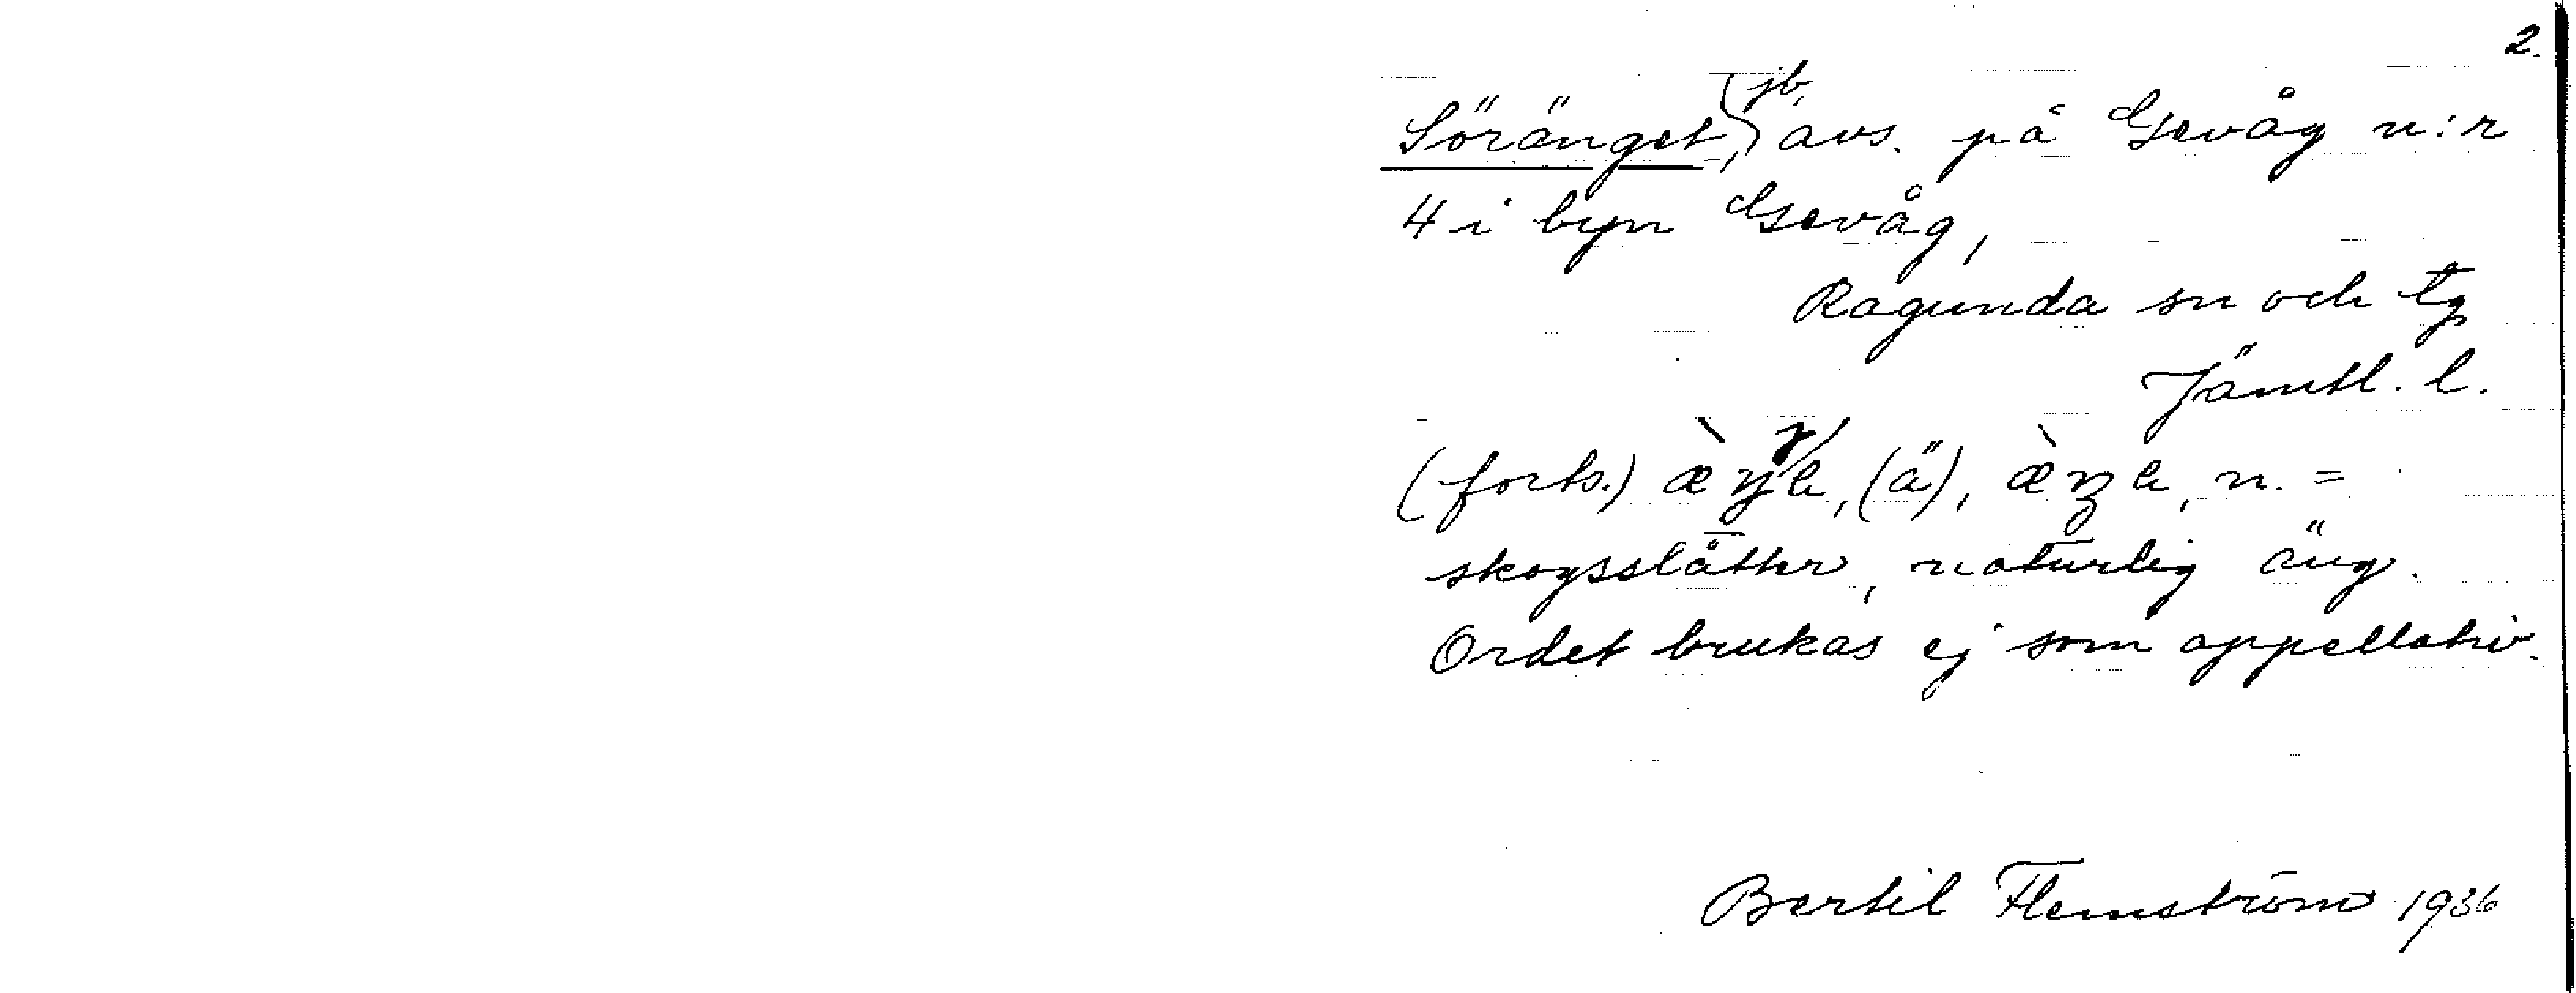 2.
Söränget, jb, avs. på Gevåg n:r
4 i byn Gevåg,
Ragunda sn och tg
Jämtl. l.
(forts.) (ä), n. =
skogsslåtter, naturlig äng.
Ordet brukas ej som appellativ.
Bertil Flemström 1936